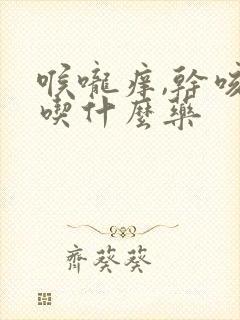 喉嚨痒,幹咳
喫什麼藥
齊葵葵